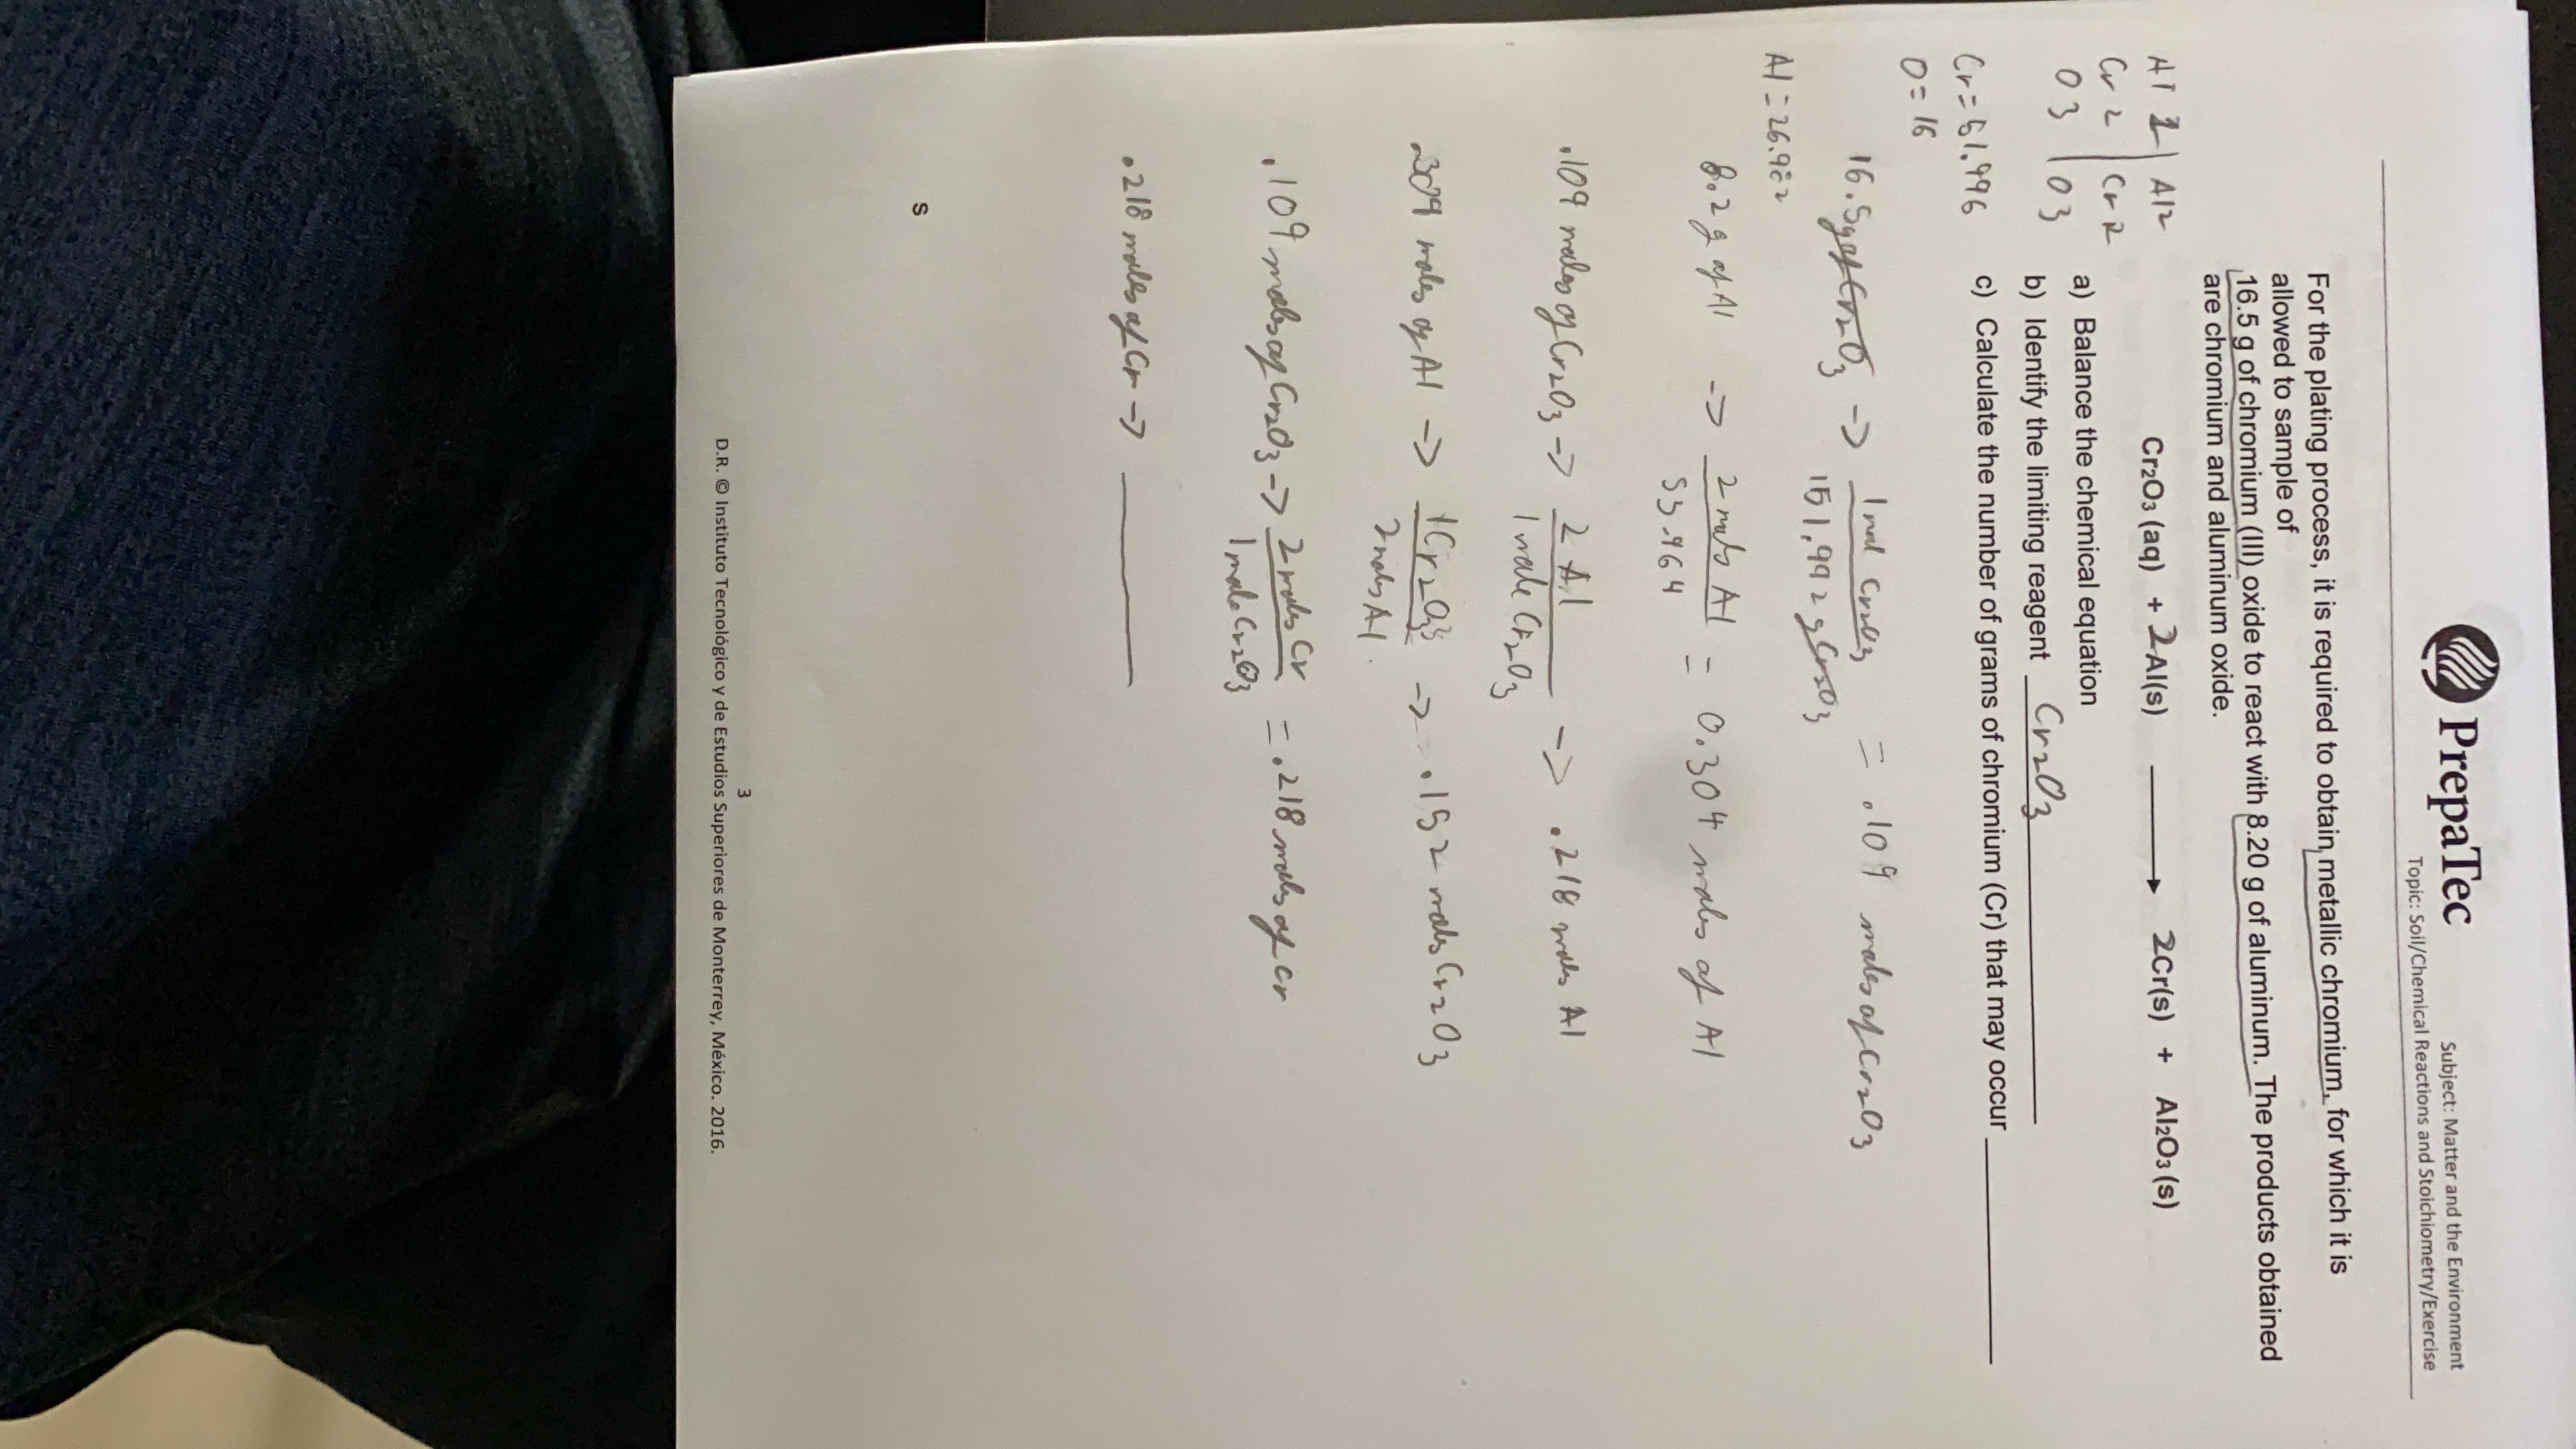 PrepaTec
Subject: Matter and the Environment
Topic: Soil/Chemical Reactions and Stoichiometry/Exercise
For the plating process, it is required to obtain metallic chromium, for which it is
allowed to sample of
16.5 g of chromium (III) oxide to react with 8.20 g of aluminum. The products obtained
are chromium and aluminum oxide.
Al 2 | Al 2
Cr 2 | Cr 2
O 3 | O 3
Cr₂O₃ (aq) + 2Al(s) → 2Cr(s) + Al₂O₃ (s)
a) Balance the chemical equation
b) Identify the limiting reagent Cr₂O₃
c) Calculate the number of grams of chromium (Cr) that may occur
Cr = 51.996
O = 16
Al = 26.982
16.5g of Cr₂O₃ → 1 mol Cr₂O₃ = .109 moles of Cr₂O₃
151.992 g Cr₂O₃
8.2 g of Al → 2 mols Al = 0.304 moles of Al
53.964
.109 moles of Cr₂O₃ → 2 Al → .218 moles Al
1 mole Cr₂O₃
moles of Al → 1 Cr₂O₃ → .152 moles Cr₂O₃
2 moles Al.
.109 moles of Cr₂O₃ → 2 moles Cr = .218 moles of Cr
1 mole Cr₂O₃
.218 moles of Cr →
s
3
D.R. © Instituto Tecnológico y de Estudios Superiores de Monterrey, México. 2016.